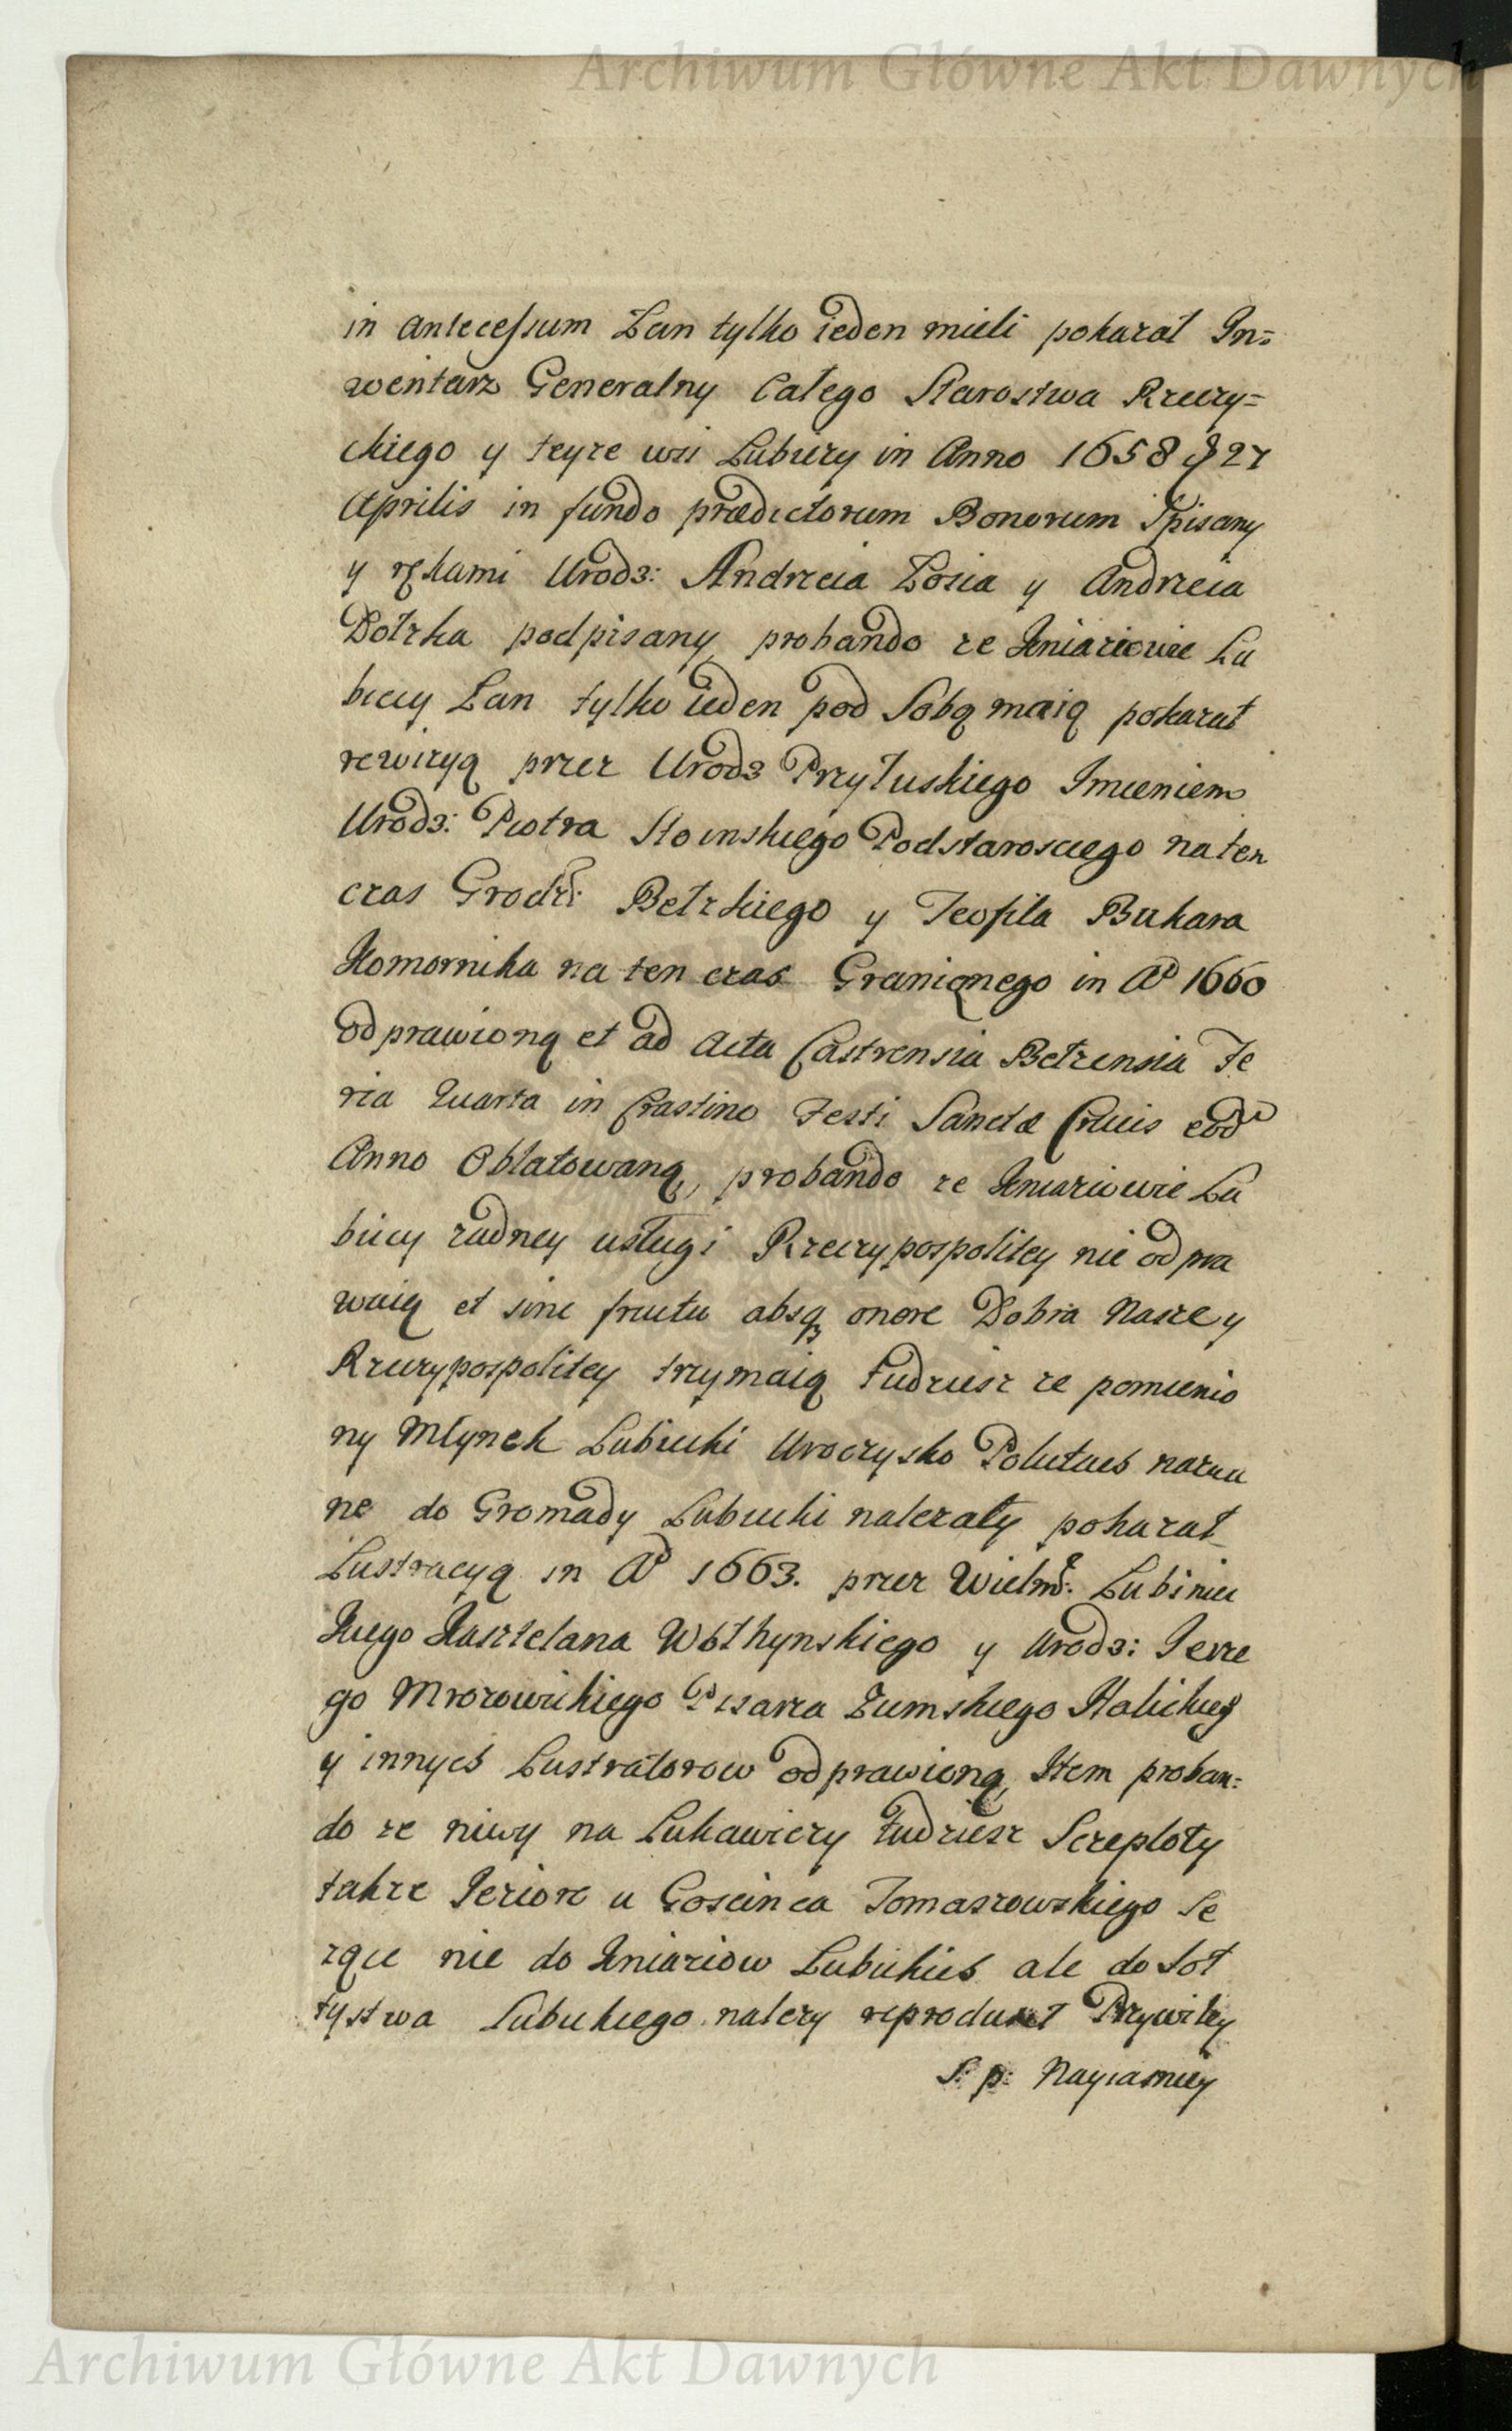 Archiwum Główne Akt Dawnych
in antecessum Łan tylko ieden mieli pokazał In=
wentarz Generalny Całego Starostwa Rzeczy=
ckiego y teyże wsi Lubiczy in Anno 1658 27
Aprilis in fundo prædictorum Bonorum Spisany
y rękami Urodz: Andrzeia Łosia y Andrzeia
podpisany probando ze Kniaziowie Lu
biccy Łan tylko ieden pod Sobą maią pokazał
rewizyą przez Urodz Przyłuskiego Imieniem
Urodz: Piotra Słoinskiego Podstarosciego na ten
czas Grodz: Bełzkiego y Teofila Bukara
Komornika na ten czas Granicznego in Aº 1660
odprawioną et ad Acta Castrensia Bełzensia Fe
ria Quarta in Crastino Festi Sanctæ Crucis eod
Anno Oblatowaną, probando ze Kniaziowie Lu
biccy żadney usługi Rzeczypospolitey nie odpra
waią et sine fructu absq onere Dobra Nasze y
Rzeczypospolitey trzymaią tudziesz ze pomienio
ny Młynek Lubicki Uroczysko nazwa
ne do Gromady Lubicki należały pokazał
Lustracyą in Aº 1663. przez Wielmż: Lubiniec
kiego Kasztelana Wołhynskiego y Urodz: Jerze
go Mrozowickiego Pisarza Ziemskiego Halickieg
y innych Lustratorow odprawioną, Item proban=
do ze niwy na Lukawiczy tudziesz Szczepłoty
także Jezioro u Goscinca Tomaszowskiego Le
żące nie do Kniaziow Lubickich ale do Soł
tystwa Lubickiego należy reprodukt Przywiley
S: p: Nayiasniey
Archiwum Główne Akt Dawnych